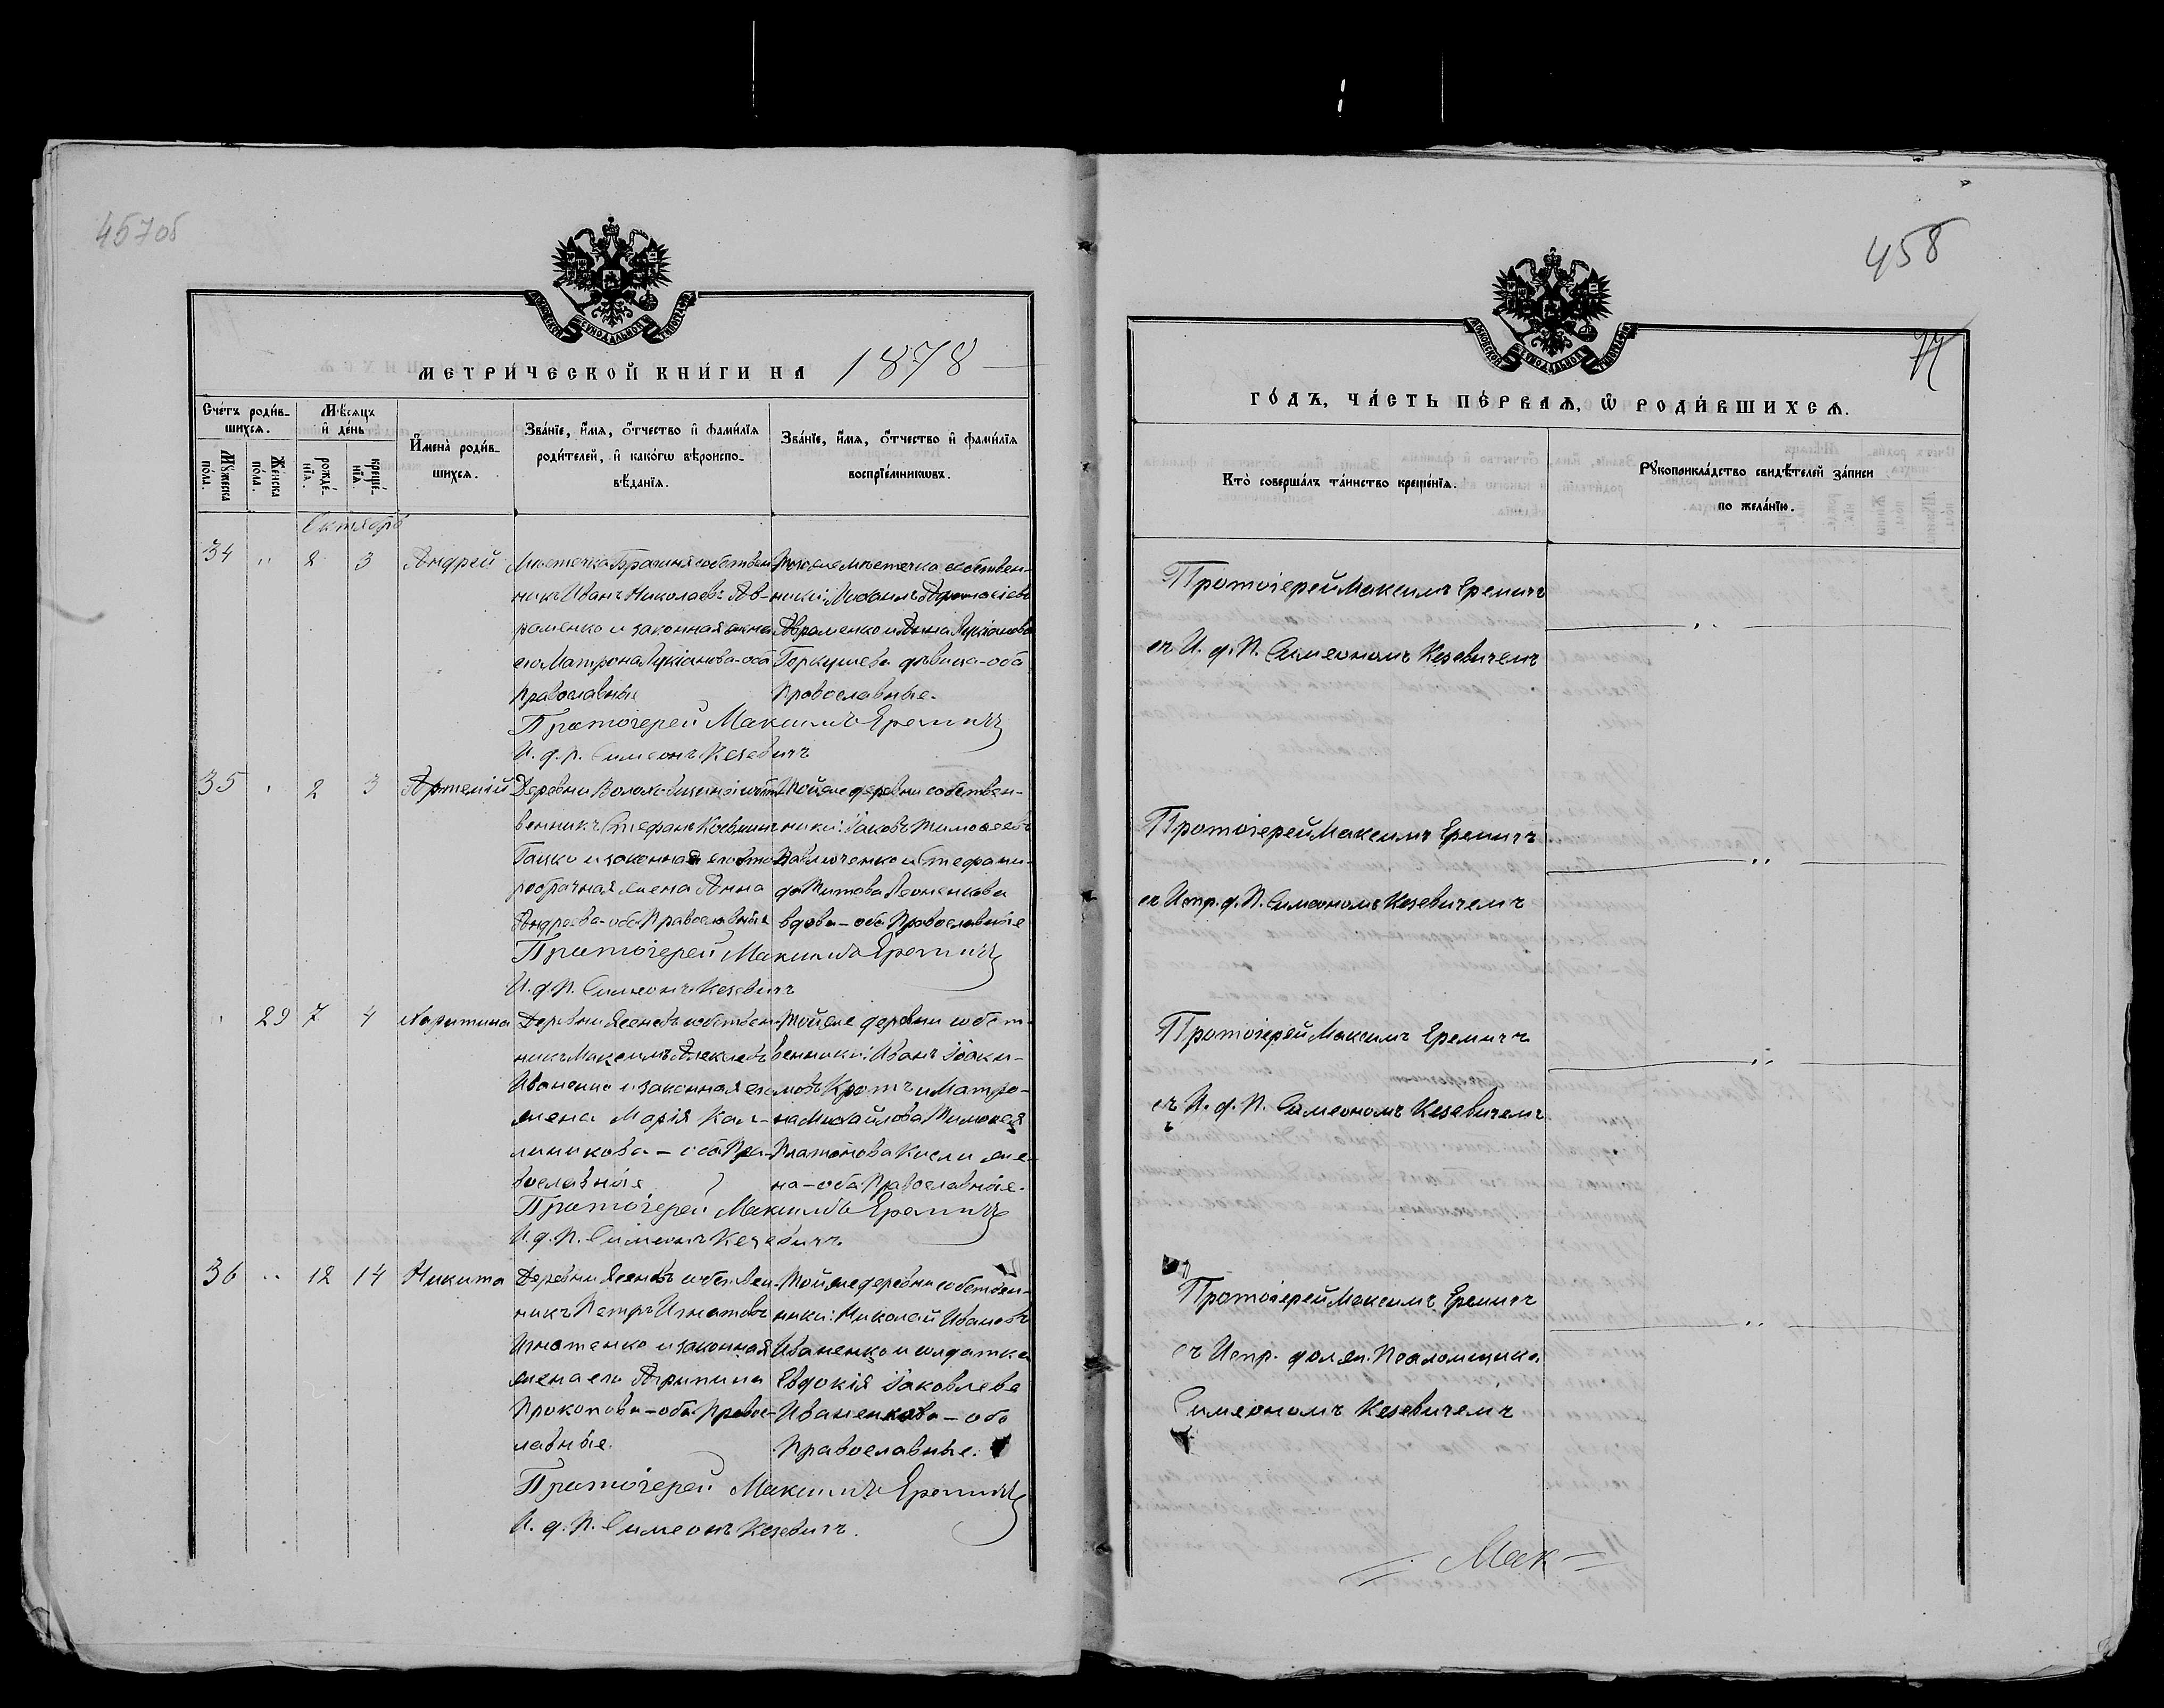 457об
МЕТРИ́ЧЕСКОЙ КНИ́ГИ НА 1878
Сче́тъ роди́в-
шихсѧ.
Мѣ́сѧцъ
и҆ де́нь
И҆мена̀ роди́в-
шихсѧ.
Зва́нїе, и҆́мѧ, ѻ҆́тчество и҆ фами́лїѧ
роди́телей, и҆ како́гѡ вѣроиспо-
вѣ́данїѧ.
Зва́нїе, и҆́мѧ, ѻ҆́тчество и҆ фами́лїѧ
воспрїе́мникѡвъ.
Мꙋ́жеска
по́ла.
Же́нска
по́ла.
рожде́-
нїѧ.
креще́-
нїѧ.
Октябрь
34 " 2 3 Андрей
Мѣстечка Брагиня собствен-
никъ Иванъ Николаевъ Ав-
раменко и законная жена
его Матрона Лукіанова - оба
Православные
Тогоже Мѣстечка собствен-
ники: Михаилъ Афанасіевъ
Авраменко и Анна Лукіанова
Горкушева дѣвица - оба
Православные.
Протоіерей Максимъ Еремичъ
И. д. п. Симеонъ Кезевичъ
35 " 2 3 Артемій
Деревни собст-
венникъ Стефанъ
Гацко и законная его вто-
робрачная жена Анна
Андреева - оба Православные
Тойже деревни собствен-
ники: Іаковъ Тимоѳеевъ
Павлюченко и Стефани-
да Титова
вдова - оба Православные
Протоіерей Максимъ Еремичъ
И. д. П. Симеонъ Кезевичъ
" 29 7 4 Харитина
Деревни Ясеновъ собствен-
никъ Максимъ Алексѣевъ
Иваненко и законная его
жена Марія Кал-
линикова - оба Пра-
вославные
Тойже деревни собст-
венники: Иванъ Іоаки-
мовъ Кротъ и Матро-
на Михайлова Тимоѳея
Платонова Кисли же-
на - оба Православные.
Протоіерей Максимъ Еремичъ
И. д. П. Симеонъ Кезевичъ
36 " 12 14 Никита
Деревни Ясеновъ собствен-
никъ Петръ Игнатовъ
Игнатенко и законная
жена его Агрипина
Прокопова - оба Правос-
лавные.
Тойже деревни собствен-
ники: Николай Ивановъ
Иваненко и солдатка
Евдокія Іаковлева
Иваненкова - оба
Православные.
Протоіерей Максимъ Еремичъ
И. д. П. Симеонъ Кезевичъ.
458
77
ГО́ДЪ, ЧА́СТЬ ПЕ́РВАѦ, Ѡ҆ РОДИ́ВШИХСѦ.
Кто̀ соверша́лъ та́инство креще́нїѧ.
Рꙋкоприкла́дство свидѣ́телей за́писи
по жела́нїю.
Протоіерей Максимъ Еремичъ
съ И. д. П. Симеономъ Кезевичемъ
Протоіерей Максимъ Еремичъ
съ Испр. д. П. Симеономъ Кезевичемъ
Протоіерей Максимъ Еремичъ
съ И. д. П. Симеономъ Кезевичемъ
Протоіерей Максимъ Еремичъ
съ Испр. долж. Псаломщика
Симеономъ Кезевичемъ
= Мак =